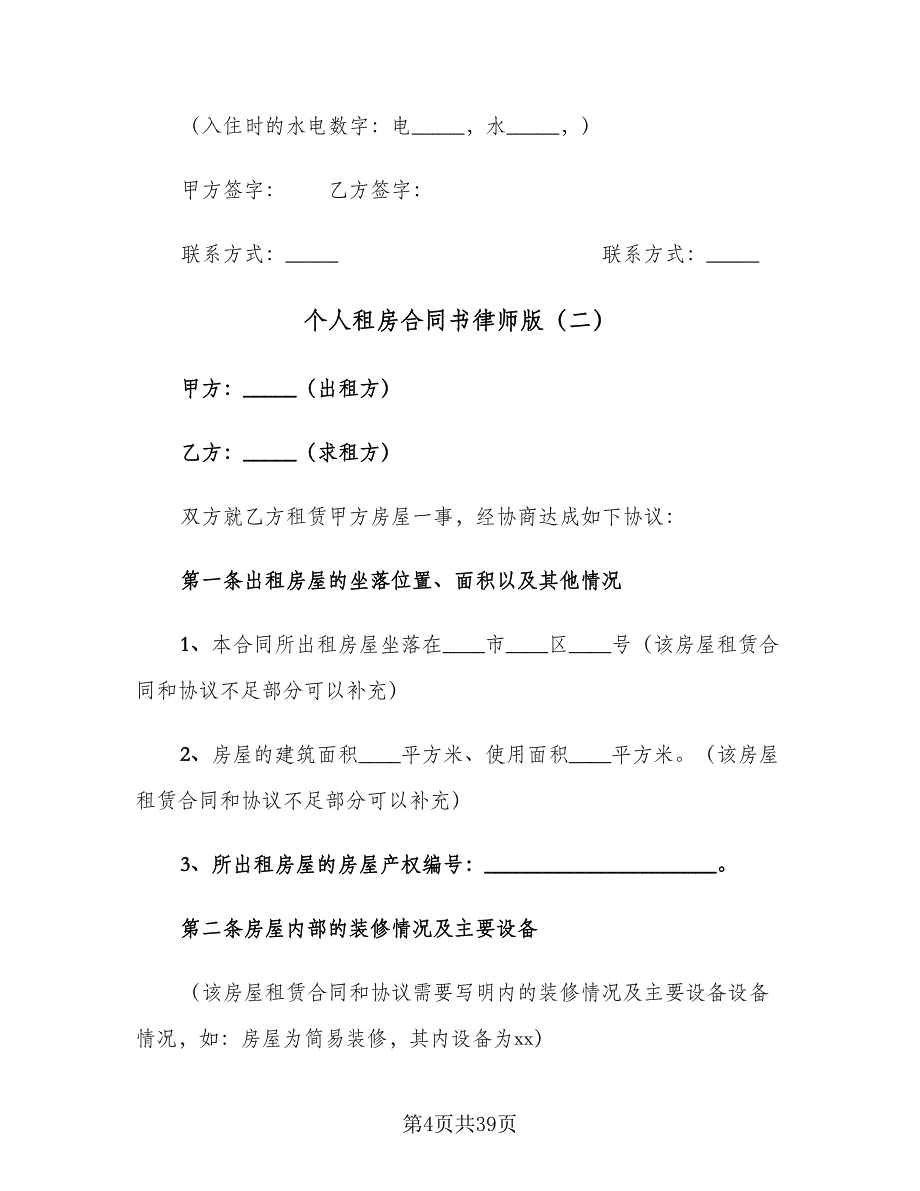 （入住时的水电数字：电_____，水_____，）
甲方签字：　　乙方签字：
联系方式：_____　　　　　　　　　　　　联系方式：_____
个人租房合同书律师版（二）
甲方：_____（出租方）
乙方：_____（求租方）
双方就乙方租赁甲方房屋一事，经协商达成如下协议：
第一条出租房屋的坐落位置、面积以及其他情况
1、本合同所出租房屋坐落在____市____区____号（该房屋租赁合
同和协议不足部分可以补充）
2、房屋的建筑面积____平方米、使用面积____平方米。（该房屋
租赁合同和协议不足部分可以补充）
3、所出租房屋的房屋产权编号：______________________。
第二条房屋内部的装修情况及主要设备
（该房屋租赁合同和协议需要写明内的装修情况及主要设备设备
情况，如：房屋为简易装修，其内设备为xx）
第4页共39页